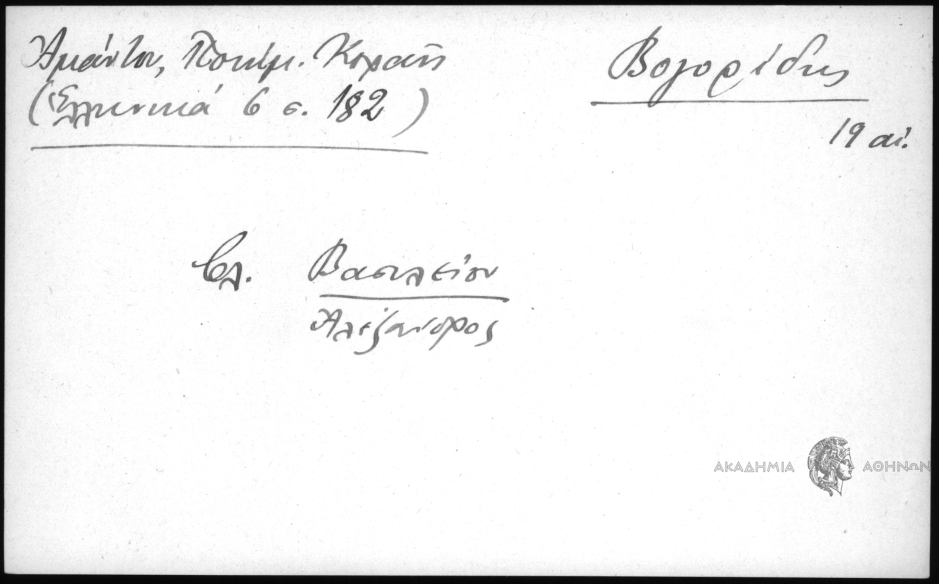 Ἀμάντου, Ποικίμ. Κοραῆ
(Ἑλληνικά 6 σ. 182)
Βογορίδης
19 αἰ.
βλ. Βασιλείου
Ἀλέξανδρος
ΑΚΑΔΗΜΙΑ ΑΘΗΝΩΝ